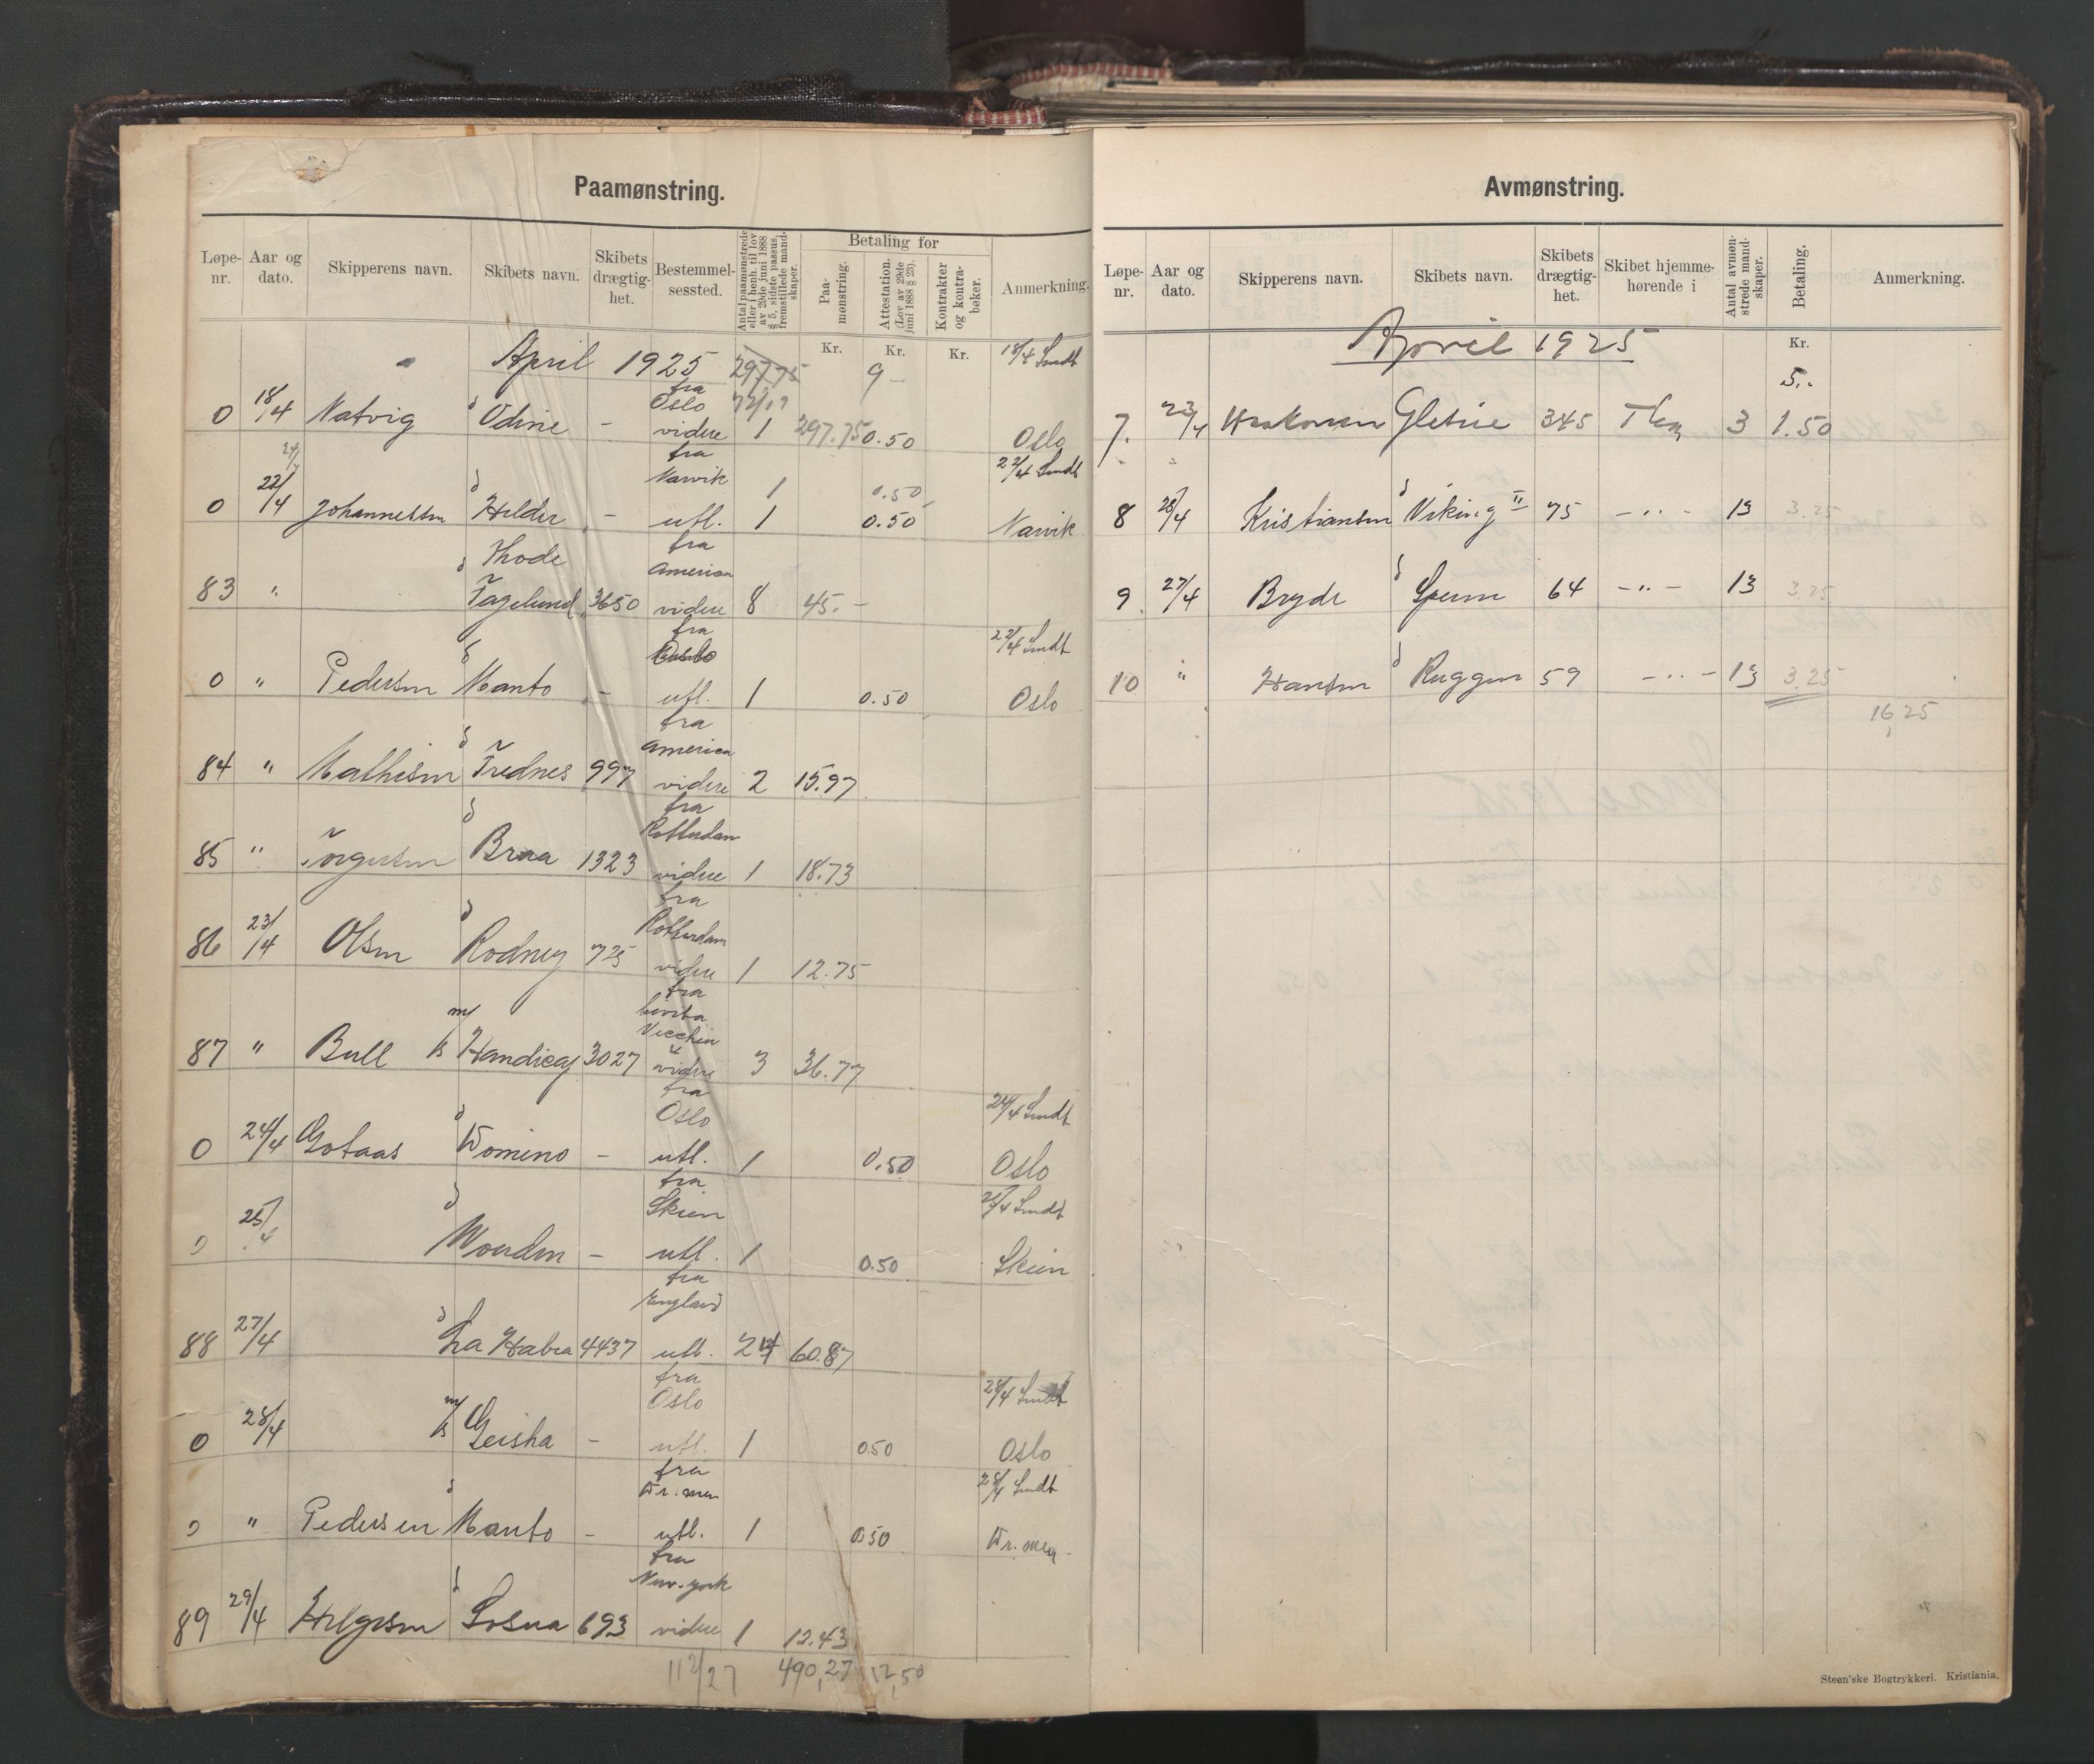 Paamønstring.
Løpe-nr. Aar og dato. Skipperens navn. Skibets navn. Skibets drægtig-het. Bestemmel-sessted. Antal paamønstrede eller i henh. til lov av 29de juni 1888 § 5, sidste passus, fremstillede mand-skaper. Betaling for Paa-mønstring. Attestation. (Lov av 29de juni 1888 § 23). Kontrakter og kontra-bøker. Anmerkning.
Kr. Kr. Kr.
April 1925 297.75 9 - 18/4 Smdt
fra
Oslo 72/19
0 18/4 Natvig Odine - videre 1 297.75 0.50 Oslo
24/ fra 22/4 Smdt
Narvik 1 0.50
0 22/4 Johannessen Hilder - utl. 1 0.50 Narvik
Thode fra
America
83 " Fagelund 3650 videre 8 45.-
fra 22/4 Smdt
Oslo
0 " Pedersen Manto - utl. 1 0.50 Oslo
fra
America
84 " Mathisen Frednes 997 videre 2 15.97
fra
Rotterdam
85 " Torgersen Braa 1323 videre 1 18.73
fra
Rotterdam
86 23/4 Olsen Rodney 725 videre 1 12.75
fra
Civita
Vecchia
87 " Bull m/s Handicap 3027 videre 3 36.77
fra
Oslo 24/4 Smdt
0 24/4 Gotaas Domino - utl. 1 0.50 Oslo
fra
Skien 25/4 Smdt
0 25/4 - utl. 1 0.50 Skien
fra
England
88 27/4 La Habra 4437 utl. 60.87
fra
Oslo 28/4 Smdt
0 28/4 m/s Geisha - utl. 1 0.50 Oslo
fra
Dr. men 28/4 Smdt
0 " Pedersen Manto - utl. 1 0.50 Dr. men
fra
New-york
89 29/4 Helgesen Sosua 693 videre 1 12.43
112/27 490,27 12,50
Avmønstring.
Løpe-nr. Aar og dato. Skipperens navn. Skibets navn. Skibets drægtig-het. Skibet hjemme-hørende i Antal avmøn-strede mand-skaper. Betaling. Anmerkning.
April 1925 Kr.
5..
7. 23/4 Haakonsen 345 3 1.50
8 25/4 Kristiansen Viking II 75 - " - 13 3.25
9 27/4 Bryde Sperm 64 - " - 13 3.25
10 " Hansen Ruggen 59 - " - 13 3.25
16,25
Steen'ske Bogtrykkeri. Kristiania.